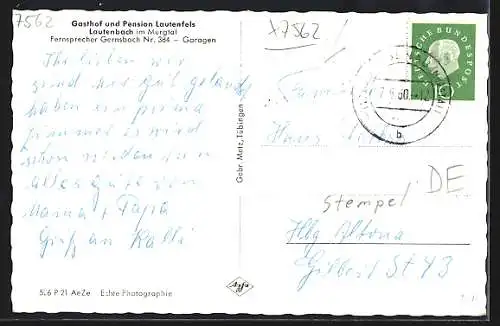 7562
Gasthof und Pension Lautenfels
Lautenbach im Murgtal
Fernsprecher Gernsbach Nr. 364 — Garagen
Ihr Lieben wir
sind hier gut gelandet
haben ein prima
Zimmer es wird
schon werden
alles gute von
Mama + Papa
Gruß an Kalli
506 P 21 AeZe Echte Photographie
Gebr. Metz, Tübingen
Agfa
x7562
DEUTSCHE BUNDESPOST
10
60
b
Familie
Hans
Stempel
DE
Hbg Altona
Gilbert St 43